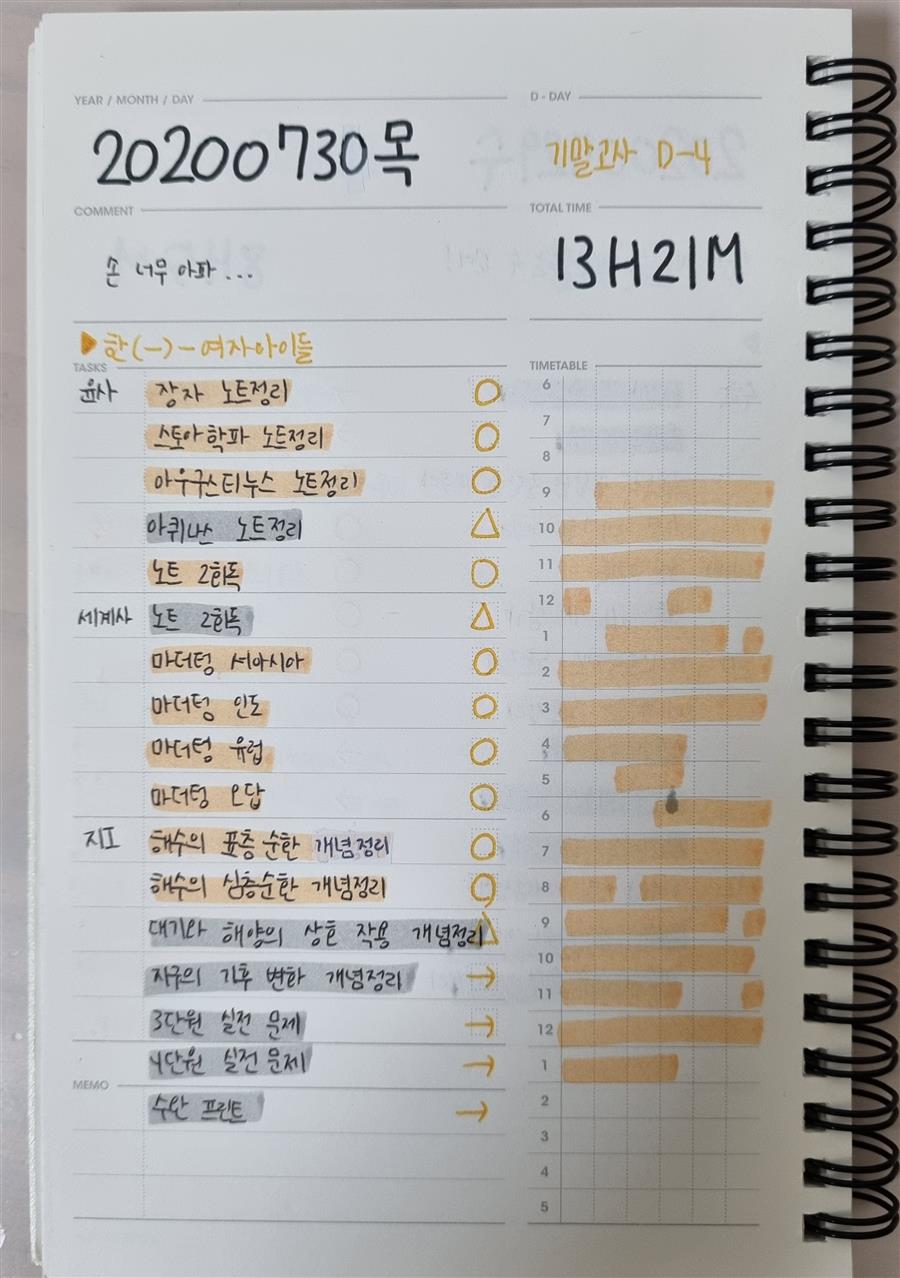 YEAR / MONTH / DAY
20200730목
D - DAY
기말고사 D-4
COMMENT
손 너무 아파...
TOTAL TIME
13H21M
▶한(一)-여자아이들
TASKS
윤사 장자 노트정리 ○
스토아학파 노트정리 ○
아우구스티누스 노트정리 ○
아퀴나스 노트정리 △
노트 2회독 ○
세계사 노트 2회독 △
마더텅 서아시아 ○
마더텅 인도 ○
마더텅 유럽 ○
마더텅 오답 ○
지I 해수의 표층 순환 개념정리 ○
해수의 심층순환 개념정리 ○
대기와 해양의 상호 작용 개념정리 △
지구의 기후 변화 개념정리 →
3단원 실전 문제 →
4단원 실전 문제 →
MEMO
수완 프린트 →
TIMETABLE
6
7
8
9
10
11
12
1
2
3
4
5
6
7
8
9
10
11
12
1
2
3
4
5